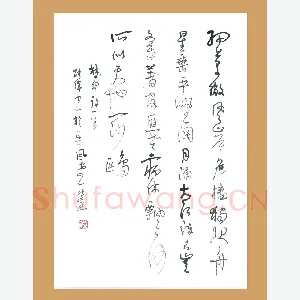 細草微風岸危檣獨夜舟
星垂平野闊月湧大江流名豈
文章著官應老病休飄飄何
所似天地一沙鷗
杜甫詩一首
Shufawang.CN